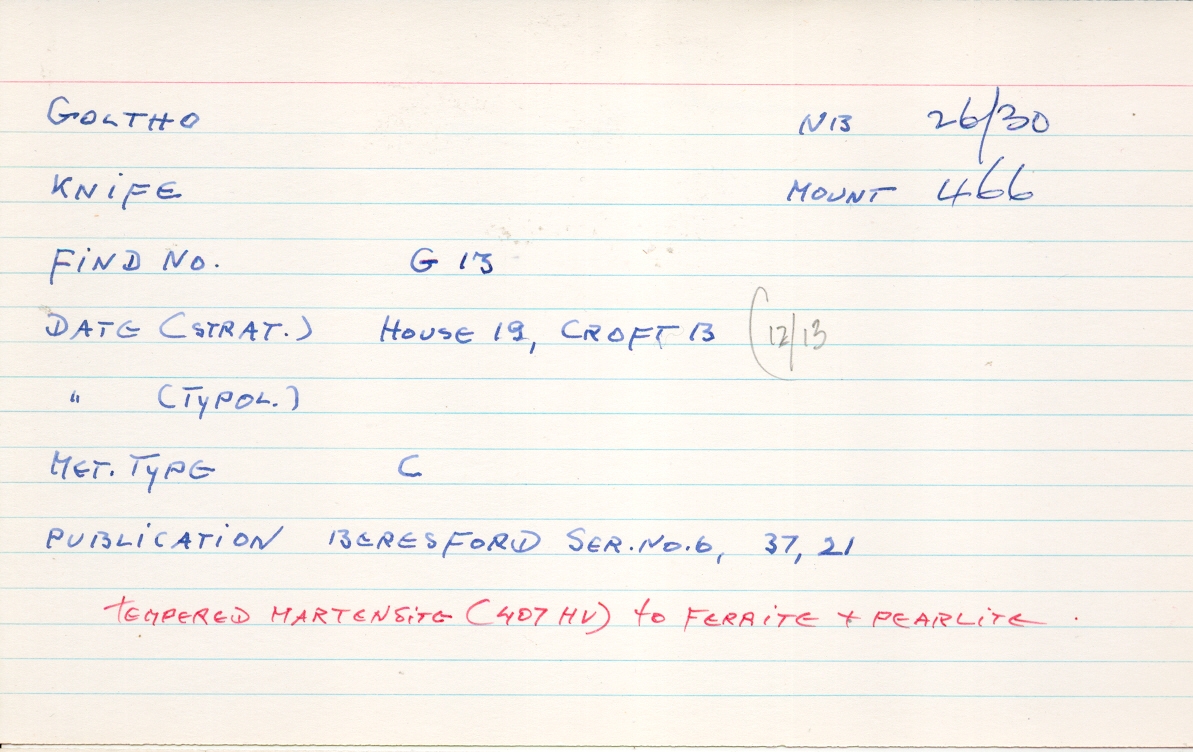 GOLTHO NB 26/30
KNIFE MOUNT 466
FIND NO. G 13
DATE (STRAT.) HOUSE 19, CROFT B (12/13
" (TYPOL.)
MET. TYPE C
PUBLICATION BERESFORD SER. NO. 6, 37, 21
TEMPERED MARTENSITE (407 HV) to FERRITE + PEARLITE.